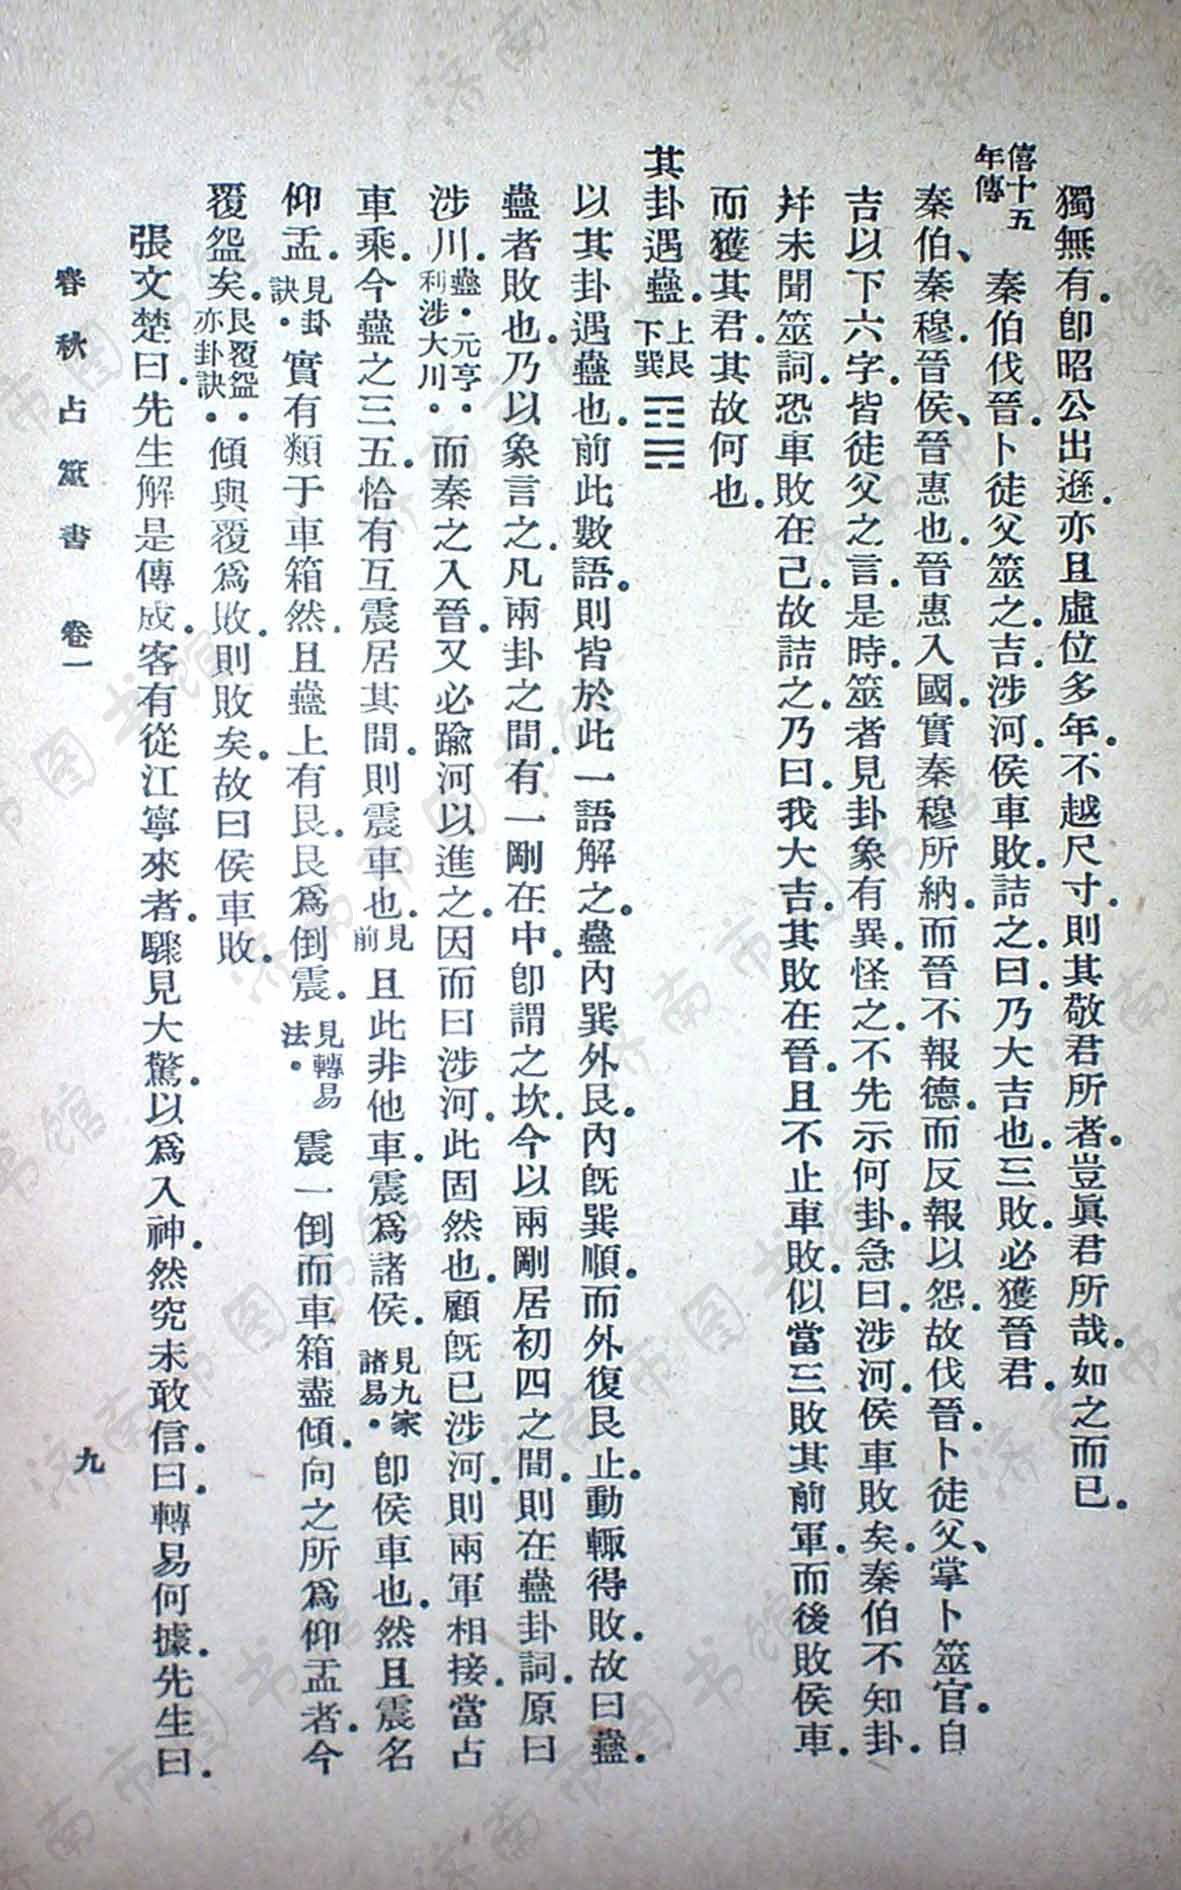 獨無有。卽昭公出遜。亦且虛位多年。不越尺寸。則其敬君所者。豈眞君所哉。如之而已。
僖十五年傳 秦伯伐晉。卜徒父筮之。吉。涉河。侯車敗。詰之。曰。乃大吉也。三敗。必獲晉君。
秦伯、秦穆。晉侯、晉惠也。晉惠入國。實秦穆所納。而晉不報德。而反報以怨。故伐晉。卜徒父、掌卜筮官。自
吉以下六字。皆徒父之言。是時。筮者見卦象有異。怪之。不先示何卦。急曰。涉河。侯車敗矣。秦伯不知卦。
幷未聞筮詞。恐車敗在己。故詰之。乃曰。我大吉。其敗在晉。且不止車敗。似當三敗其前軍。而後敗侯車。
而獲其君。其故何也。
其卦遇蠱。上艮下巽 ䷑
以其卦遇蠱也。前此數語。則皆於此一語解之。蠱內巽外艮。內旣巽順。而外復艮止。動輒得敗。故曰蠱。
蠱者敗也。乃以象言之。凡兩卦之間。有一剛在中。卽謂之坎。今以兩剛居初四之間。則在蠱卦詞。原曰
涉川。蠱。元亨。利涉大川。而秦之入晉。又必踰河以進之。因而曰涉河。此固然也。顧旣已涉河。則兩軍相接。當占
車乘。今蠱之三五。恰有互震居其間。則震車也。見前 且此非他車。震爲諸侯。見九家諸易。卽侯車也。然且震名
仰盂。見卦訣。實有類于車箱然。且蠱上有艮。艮爲倒震。見轉易法。震一倒而車箱盡傾。向之所爲仰盂者。今
覆盌矣。艮覆盌。亦卦訣。傾與覆爲敗。則敗矣。故曰侯車敗。
張文楚曰。先生解是傳成。客有從江寧來者。驟見大驚。以爲入神。然究未敢信。曰。轉易何據。先生曰。
春秋占筮書 卷一
九